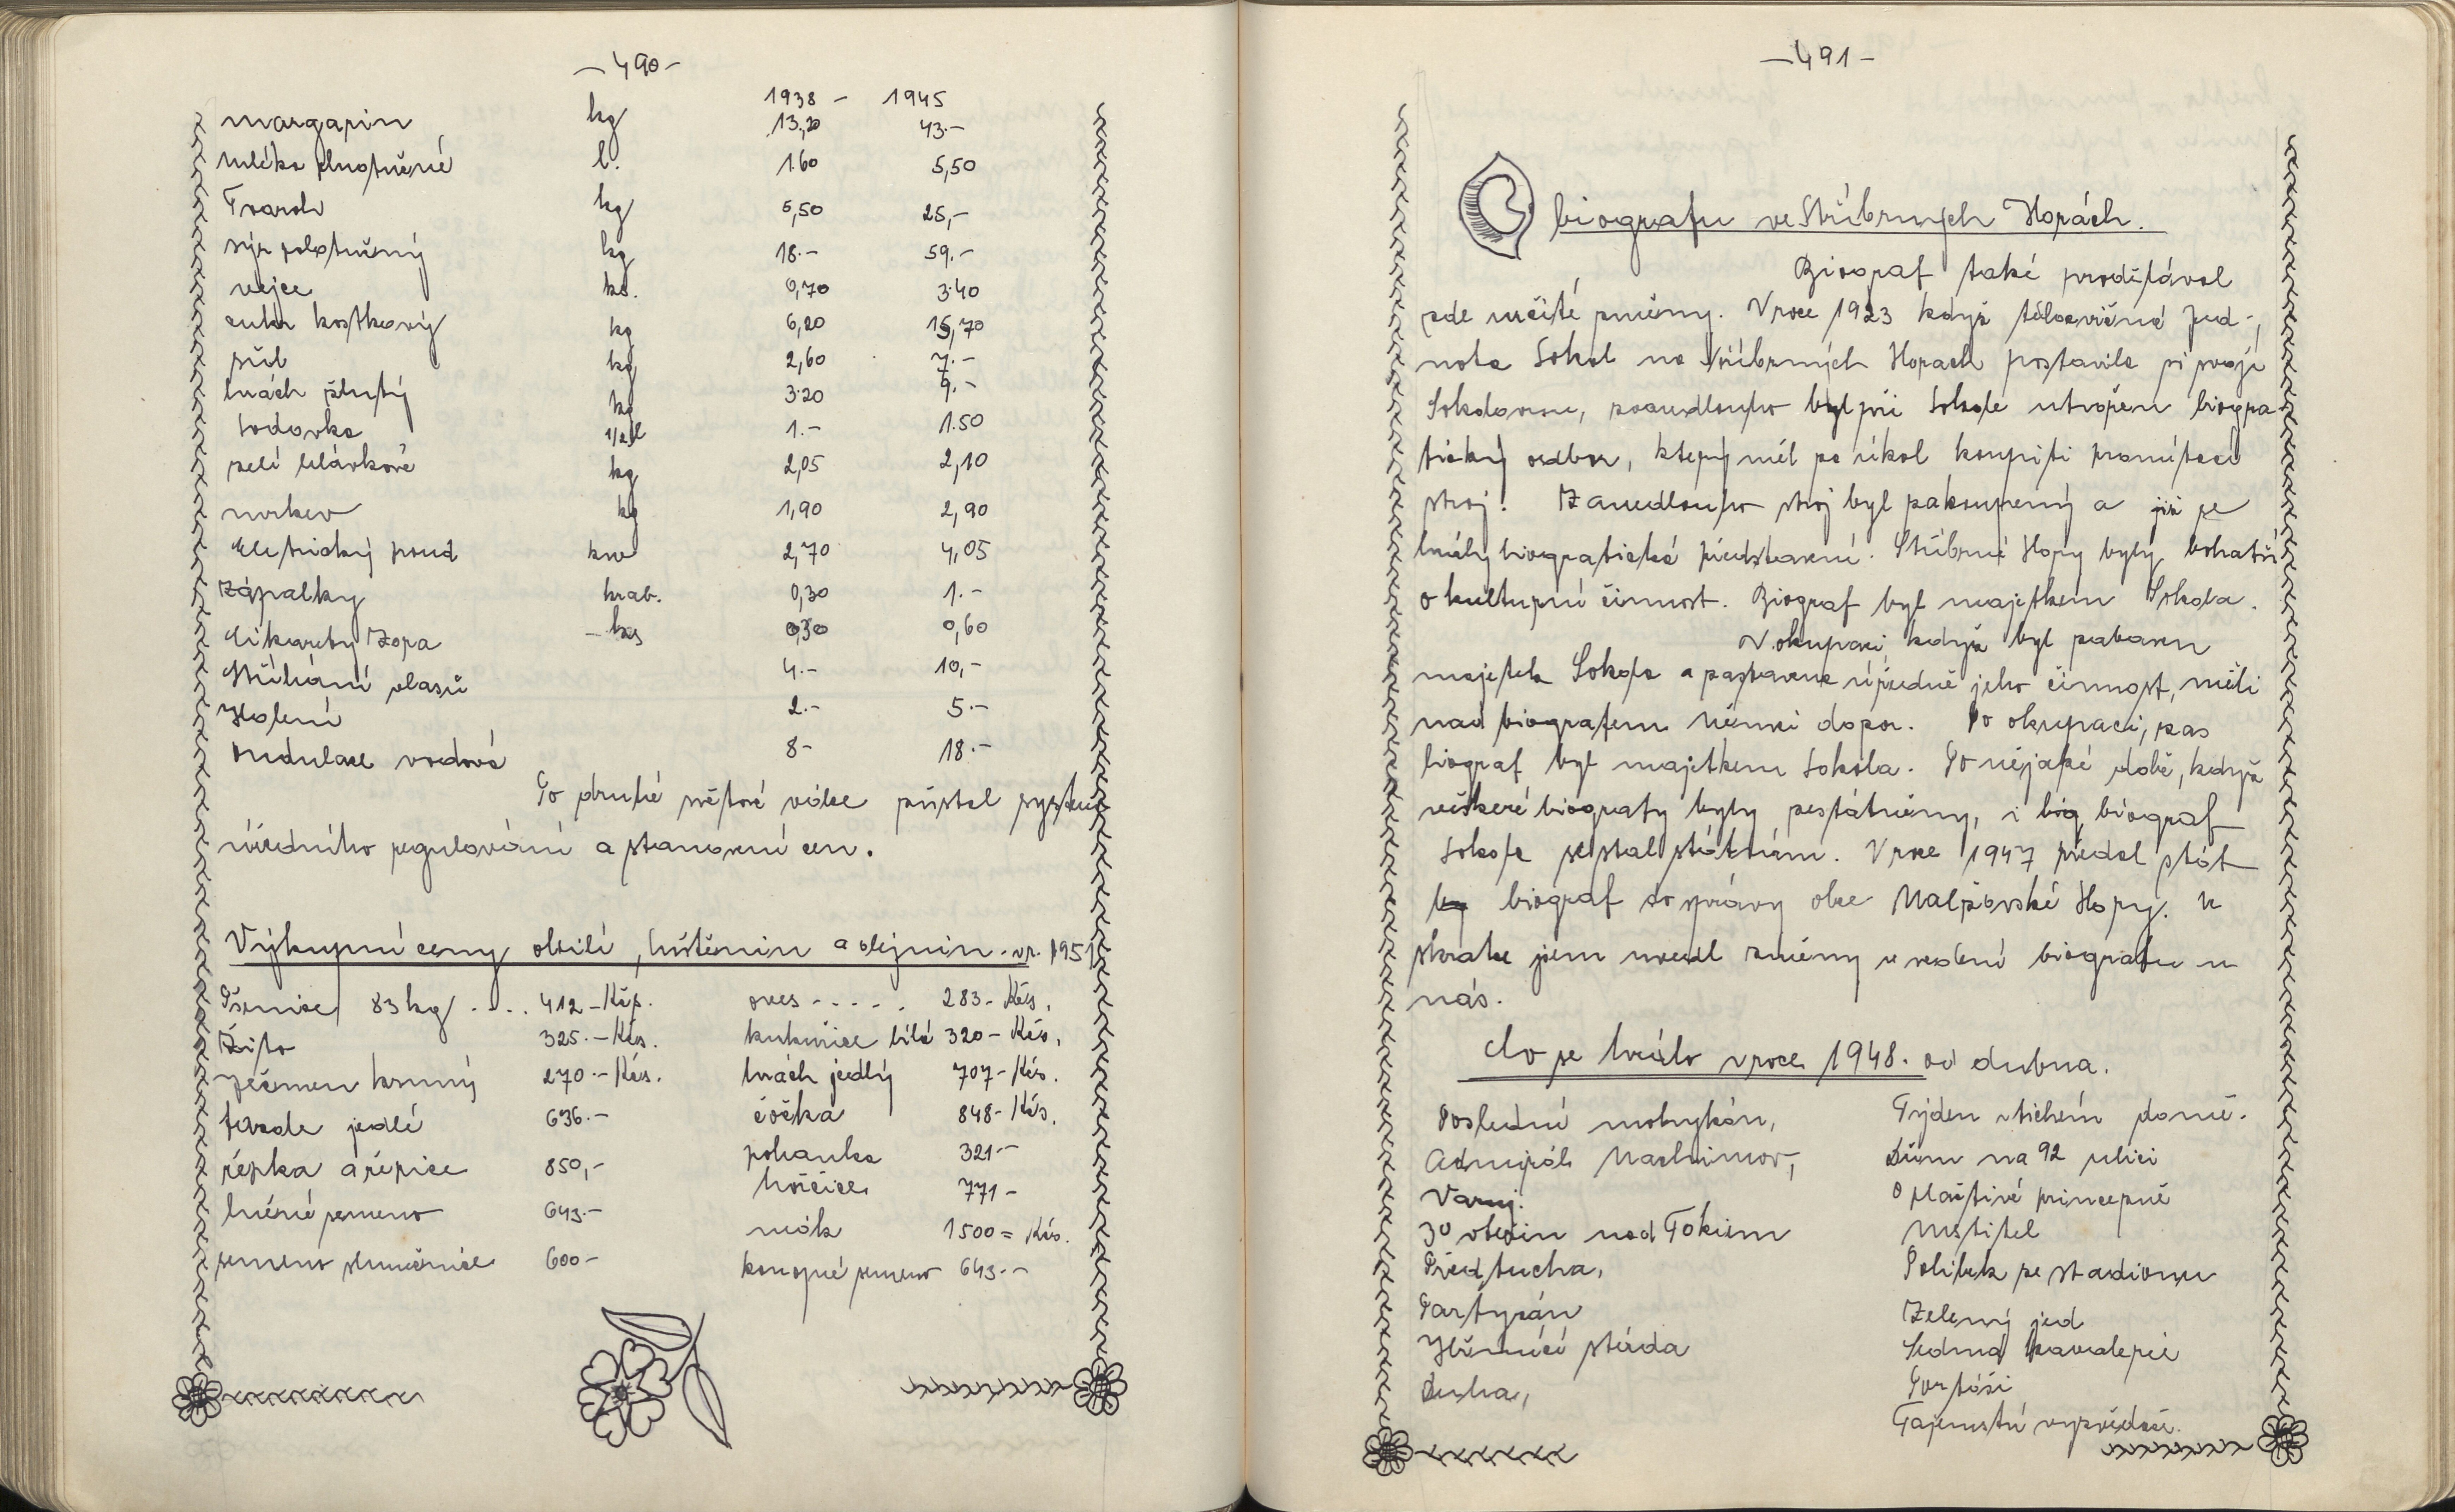 - 490 -
1938 - 1945
margarin kg 13,20 43.-
mléko plnotučné l. 1.60 5,50
Tvaroh kg 5,50 25,-
sýr polotučný kg 18.- 59.-
vejce ks. 0,70 3.40
cukr kostkový kg 6,20 15,70
sůl kg 2,60 7.-
hrách žlutý kg 3.20 9.-
sodovka 1/2 l 1.- 1.50
zelí hlávkové kg 2,05 2,10
mrkev kg 1,90 2,90
Elektrický proud kw 2,70 4,05
Zápalky krab. 0,30 1.-
Cikarety Zora - ks 0,30 0,60
Stříhání vlasů 4.- 10,-
Holení 2.- 5.-
ondulace vodová 8- 18.-
Po druhé světové válce zůstal systém
úředního regulování a stanovení cen.
Výkupní ceny obilí, luštěnin a olejnin. vr. 1951
Pšenice 83 kg .... 412 - Kčs. oves ..... 283 - Kčs.
Žito 325.- Kčs. kukuřice bílá 320 - Kčs.
Ječmen krmný 270.- Kčs. hrách jedlý 707 - Kčs.
fazole jedlé 636.- čočka 848 - Kčs.
řepka a řepice 850,- pohanka 321.-
lněné semeno 643.- hořčice 771 -
semeno slunečnice 600 - mák 1500 = Kčs.
konopné semeno 643.-
- 491 -
O biografu ve Stříbrných Horách.
Biograf také prodělával
zde určité změny. V roce 1923 když tělocvičná Jed-
nota Sokol na Stříbrných Horach postavila si svoji
Sokolovnu, zanedlouho byl při Sokole utvořen biogra-
fický odbor, který měl za úkol koupiti promítací
stroj. Zanedlouho stroj byl zakoupený a již se
hrály biografické představení. Stříbrné Hory byly bohatší
o kulturní činnost. Biograf byl majetkem Sokola.
V okupaci, když byl zabaven
majetek Sokola a zastavena úředně jeho činnost, měli
nad biografem Němci dozor. Po okupaci, zas
biograf byl majetkem Sokola. Po nějaké době, když
veškeré biografy byly zestátněny, i biog, biograf
Sokola se stal státním. V roce 1947 předal stát
biograf do správy obce Nalžovské Hory. V
skratce jsem uvedl změny v vedení biografu u
nás.
Co se hrálo v roce 1948. od dubna.
Poslední mohykán, Týden v tichém domě.
Admirál Nachimov, Dům na 92 ulici
Varuj. O plačtivé princezně
30 vteřin nad Tokiem Mstitel
Předtucha, Polibek ze stadionu
Partyzán Zelený jed
Hřmící stáda Sedmá kavalerie
Duha, Portáši
Tajemství vyzvědač.